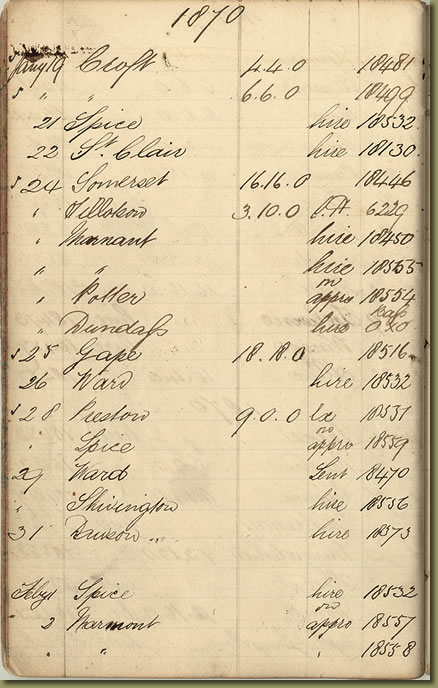 1870
Jany 19 Croft 4.4.0 18481
s " " 6.6.0 18499
21 Spice hire 18532
22 St. Clair hire 18130
s 24 Somerset 16.16.0 18446
" 3.10.0 6229
" hire 18450
" " hire 18555
on
" Potter appro 18554
" Dundass hire
s 25 Gape 18.18.0 18516
26 Ward hire 18532
s 28 Preston 9.0.0 Ex 18537
on
" Spice appro 18559
29 Ward Sent 18470
" Shivington hire 18556
31 hire 18573
Feby 1 Spice hire 18532
on
2 Marmont appro 18557
" " 18558